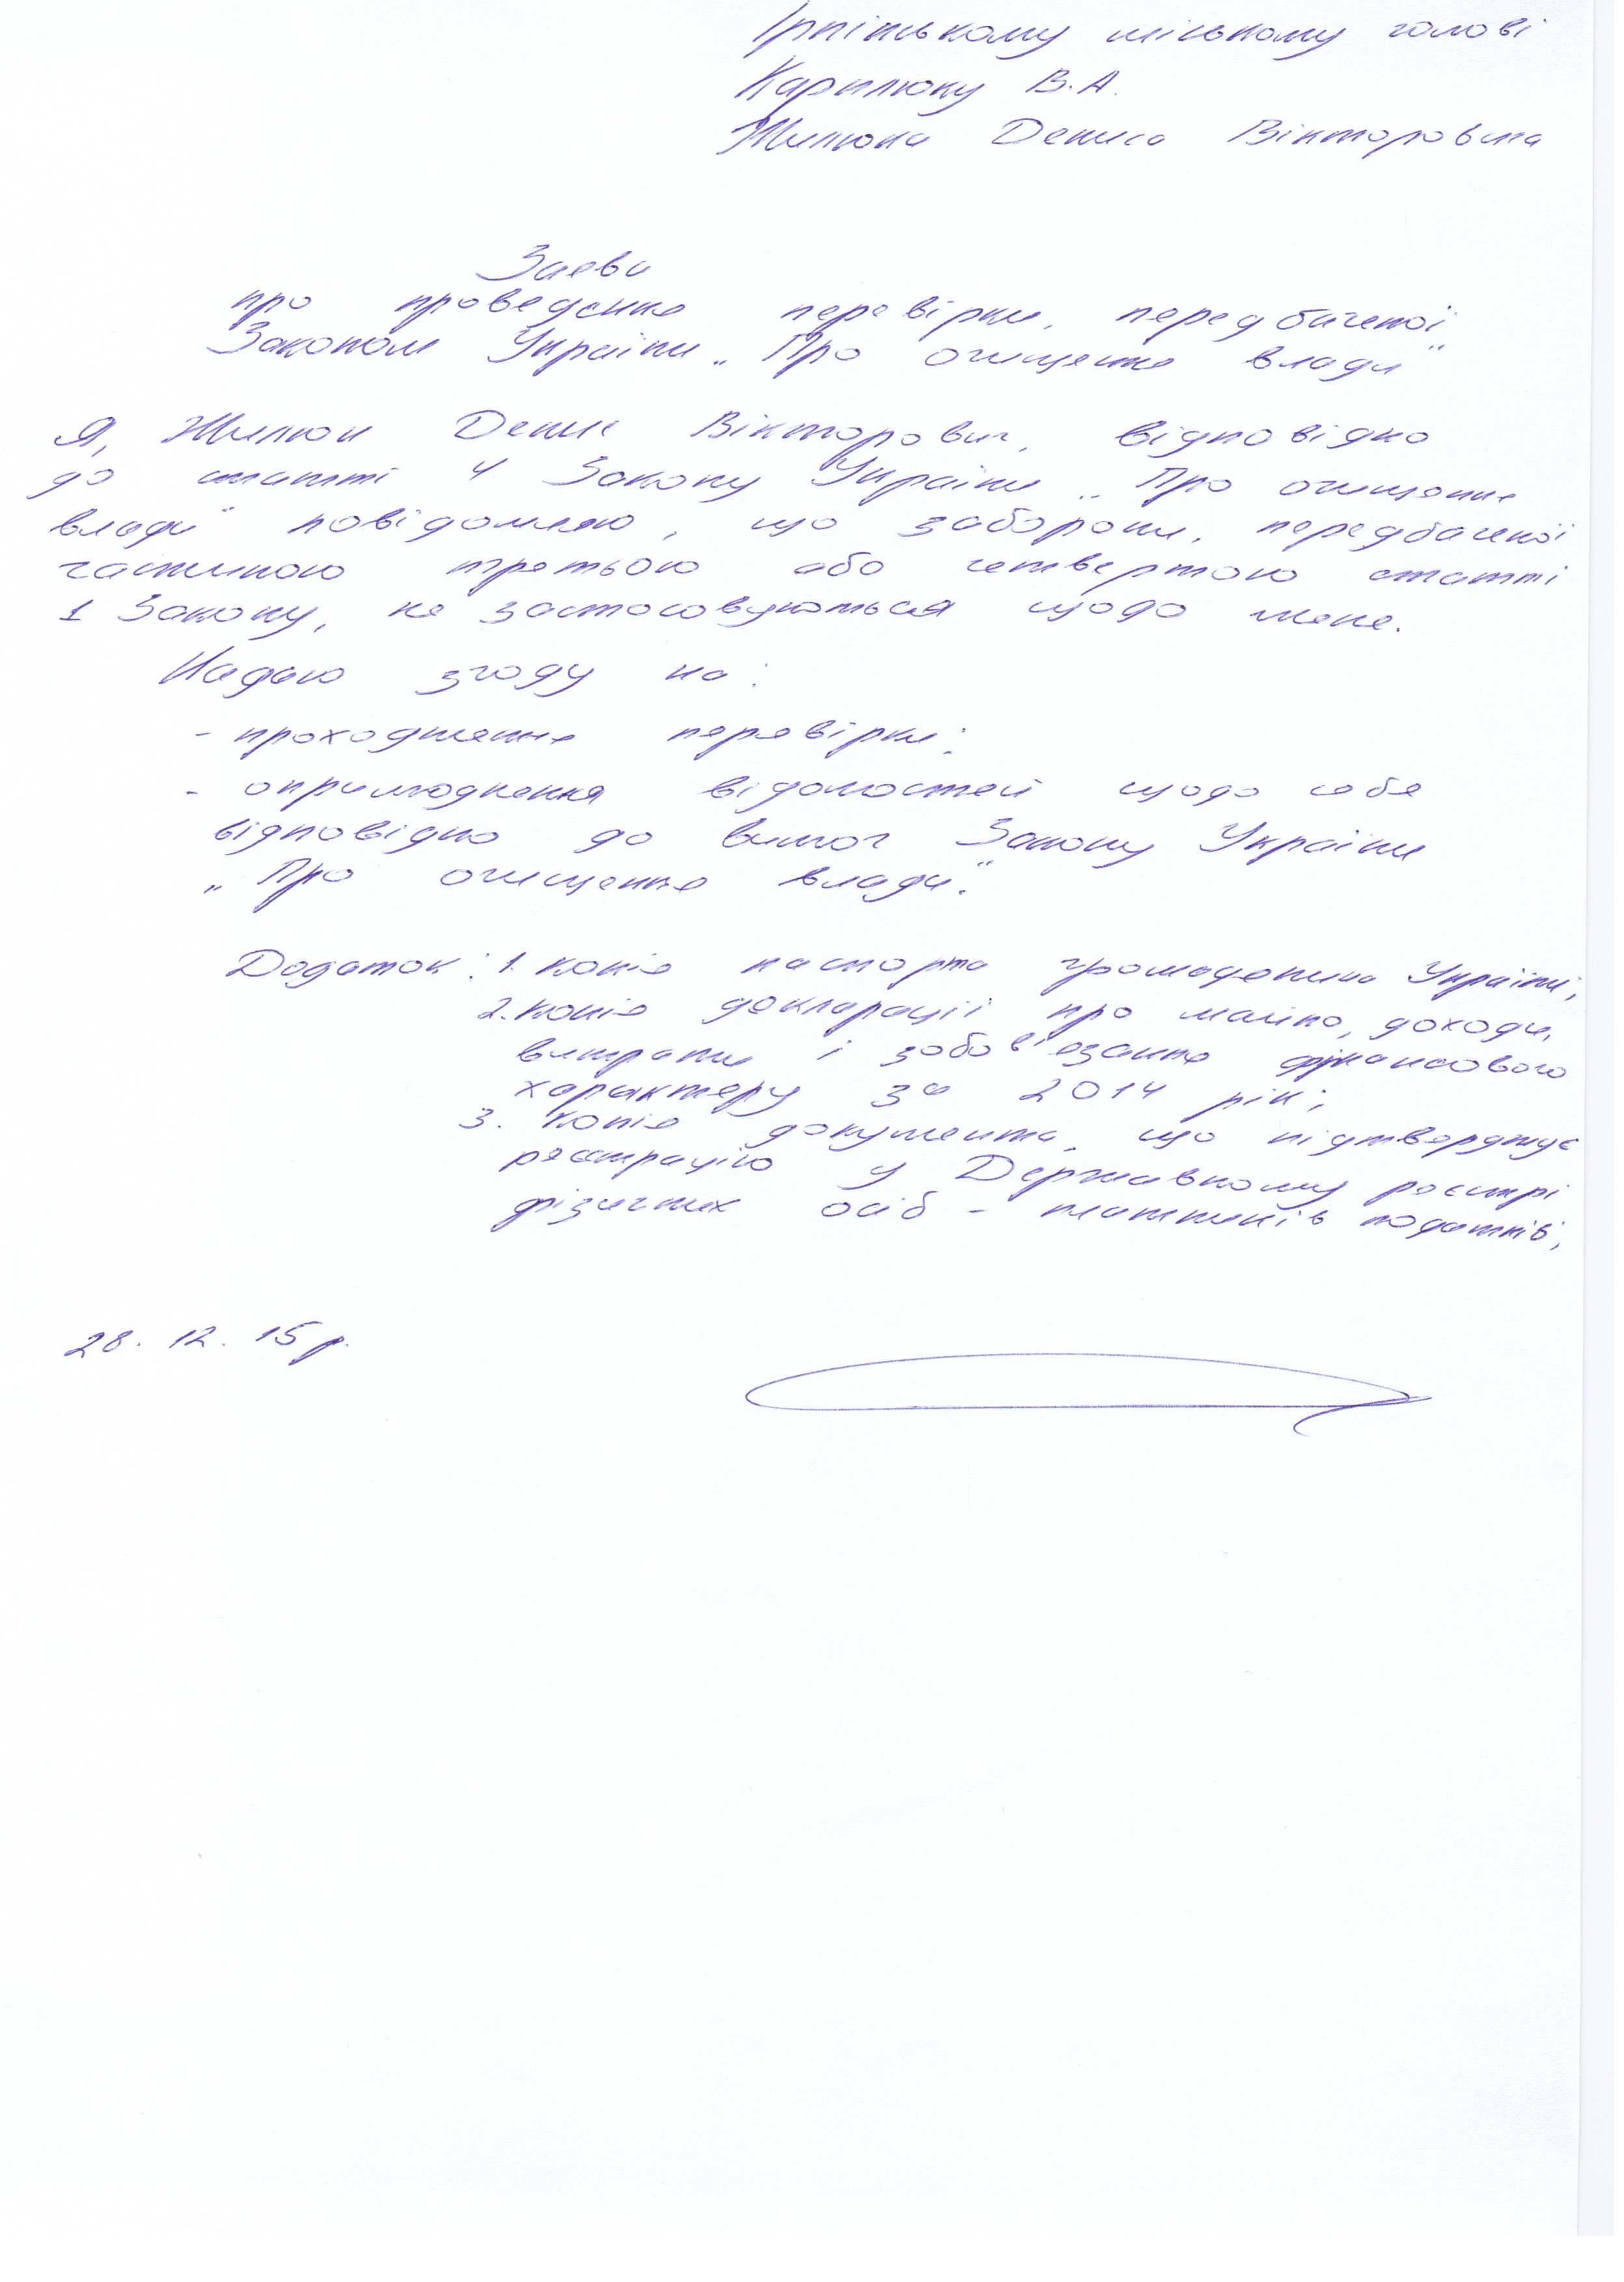 Ірпінському міському голові
Карплюку В.А.
Жилюка Дениса Вікторовича
Заява
про проведення перевірки, передбаченої
Законом України „Про очищення влади"
Я, Жилюк Денис Вікторович, відповідно
до статті 4 Закону України „Про очищення
влади" повідомляю, що заборони, передбаченої
частиною третьою або четвертою статті
1 Закону, не застосовуються щодо мене.
Надаю згоду на:
- проходження перевірки;
- оприлюднення відомостей щодо себе
відповідно до вимог Закону України
„Про очищення влади".
Додаток: 1. копія паспорта громадянина України;
2. копія декларації про майно, доходи,
витрати і зобов'язання фінансового
характеру за 2014 рік;
3. копія документа, що підтверджує
реєстрацію у Державному реєстрі
фізичних осіб - платників податків;
28. 12. 15 р.